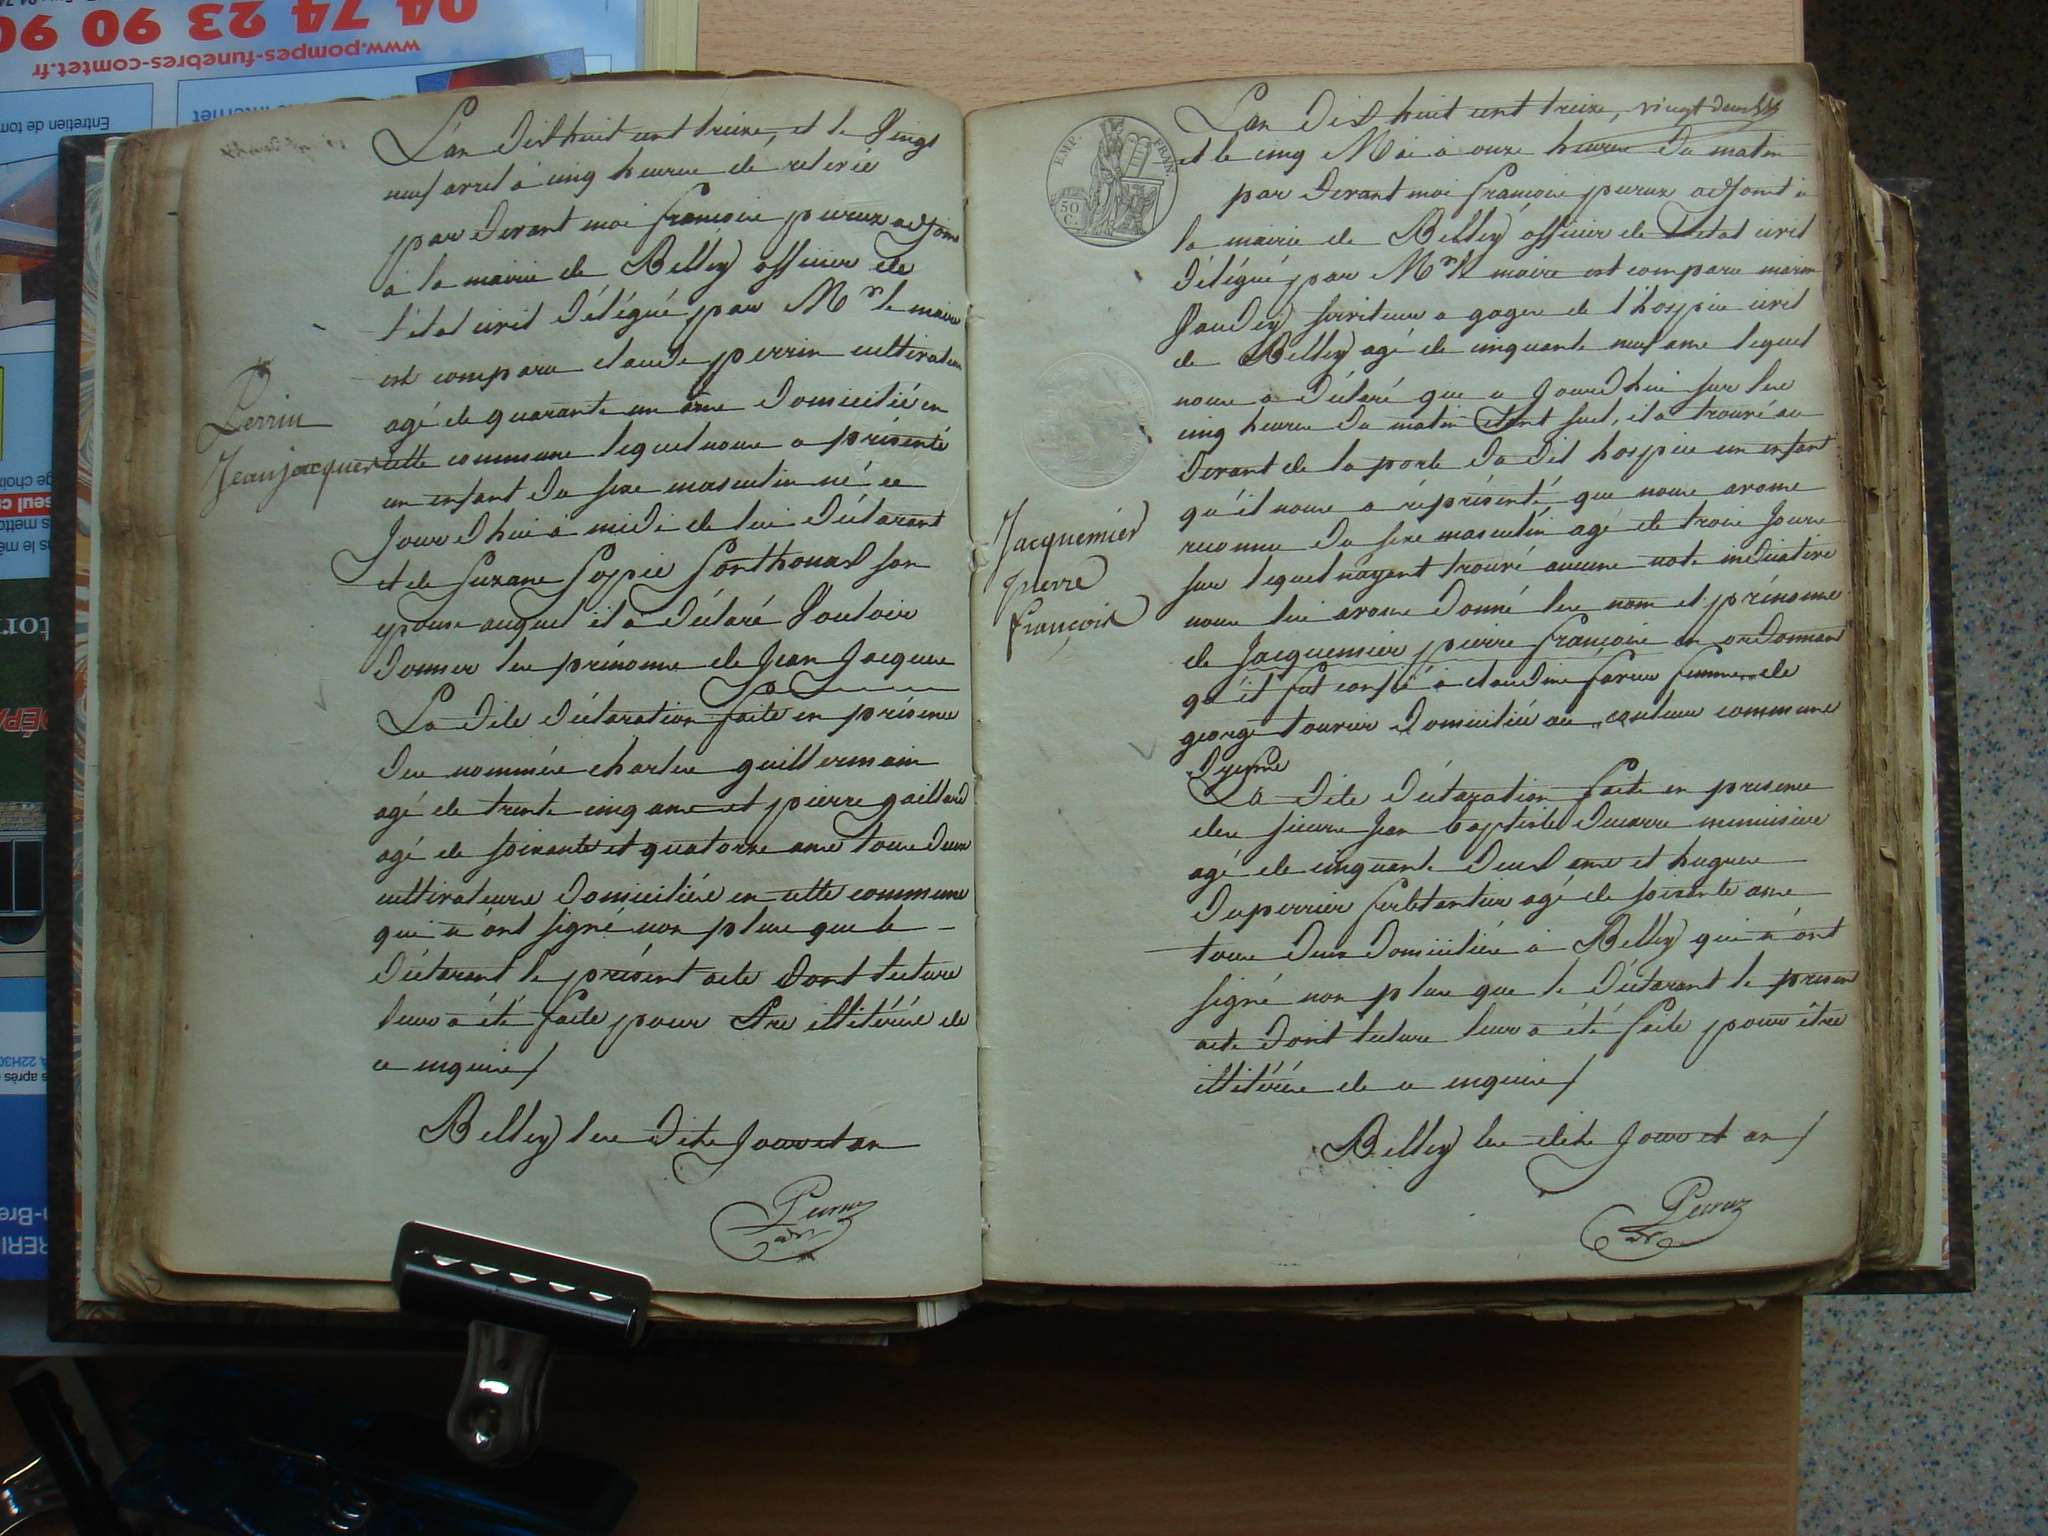 04 74 23 90 90
www.pompes-funebres-comtet.fr
Entretien de tom
L'an Dix huit cent treize, et le Vingt
neuf avril à cinq heures de relevée
par devant moi françois peruz adjoint
à la mairie de Belley officier de
l'état civil délégué par Mr le maire
est comparu claude perrin cultivateur
agé de quarante un ans Domicilié en
cette commune lequel nous a présenté
un enfant du sexe masculin né ce
Jourd'hui à midi de lui Déclarant
et de Suzane Sophie Ponthonas son
epouse auquel il a déclaré Vouloir
Donner les prénoms de Jean Jacques
La dite déclaration faite en présence
des nommés charles guillermain
agé de trente cinq ans et pierre gaillard
agé de soixante et quatorze ans tous deux
cultivateurs Domiciliés en cette commune
qui n'ont signé non plus que le
Déclarant le présent acte dont lecture
leur a été faite pour être illitérés de
ce enquis /
Belley les dits Jour et an
Peruz
adt
Perrin
Jean jacques
EMP. FRAN.
50 C.
vingt deux
L'an Dix huit cent treize,
et le cinq Mai à onze heures du matin
par devant moi françois peruz adjoint à
la mairie de Belley officier de L'etat civil
délégué par Mr le maire est comparu
Vaudey serviteur a gages de l'hospice civil
de Belley agé de cinquante neuf ans lequel
nous a déclaré que a Jourd'hui sur les
cinq heures du matin etant seul, il a trouvé au
devant de la porte du dit hospice un enfant
qu'il nous a réprésenté que nous avons
reconnu du sexe masculin agé de trois Jours
sur lequel n'ayant trouvé aucune note indicative
nous lui avons donné les nom et prénoms
de Jacquemier pierre françois en ordonnant
qu'il fut confié à claudine favier femme de
george tavier Domicilié au commune
D'yenne
La dite déclaration faite en presence
des sieurs Jean baptiste Ducarre menuisier
agé de cinquante deux ans et hugues
Duperrier ferblantier agé de soixante ans
tous deux Domiciliés à Belley qui n'ont
signé non plus que le Déclarant le present
acte dont lecture leur a été faite pour être
illitérés de ce enquis /
Belley les dits Jour et an /
Peruz
adt
Jacquemier
pierre
françois